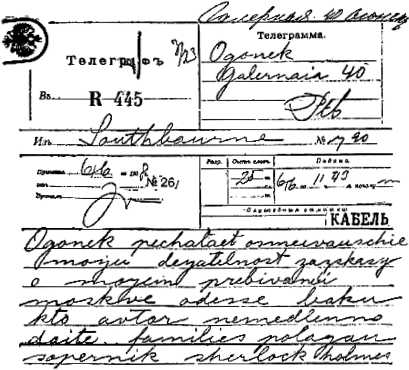 Галерная 40 Огонек
Телеграфъ 7/23
Телеграмма.
Ogonek
Galernaia 40
Ptb
Въ
R 445
Изъ Southbourne № 790
Принята 6/6 190 8
№ 261
Разр. Счетъ словъ. Подача
25 6/6 11 43
Служебныя отмѣтки
КАБЕЛЬ
Ogonek pechataet osmeivauschie
moiju deyatelnost zazakasy
o moyem prebivanii
moskve odesse baku
kto avtor nemedlenno
daite families polagau
sopernik sherlock holmes